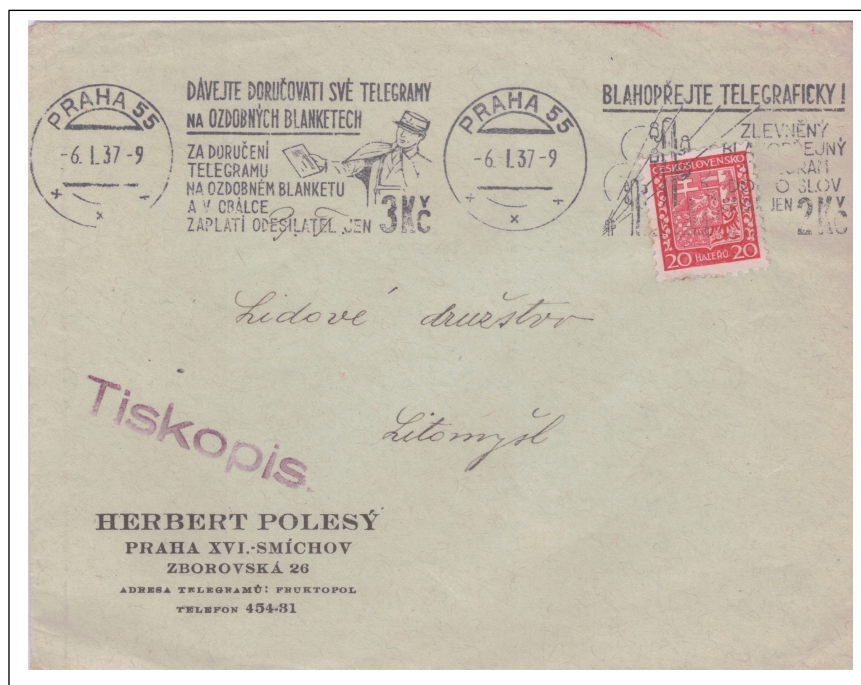 PRAHA 55
-6. I. 37-9
DÁVEJTE DORUČOVATI SVÉ TELEGRAMY
NA OZDOBNÝCH BLANKETECH
ZA DORUČENÍ
TELEGRAMU
NA OZDOBNÉM BLANKETU
A V OBÁLCE
ZAPLATÍ ODESÍLATEL JEN 3 Kč
PRAHA 55
-6. I. 37-9
BLAHOPŘEJTE TELEGRAFICKY!
ZLEVNĚNÝ
SLOV
JEN 2 Kč
ČESKOSLOVENSKO
20 HALÉŘŮ 20
Lidové družstvo
Litomyšl
Tiskopis.
HERBERT POLESÝ
PRAHA XVI.-SMÍCHOV
ZBOROVSKÁ 26
ADRESA TELEGRAMŮ: FRUKTOPOL
TELEFON 454-31